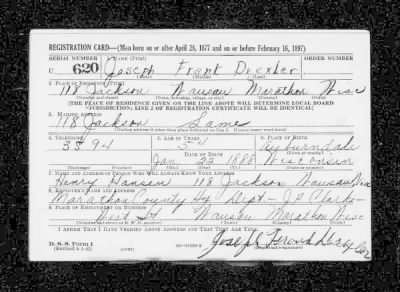 REGISTRATION CARD—(Men born on or after April 28, 1877 and on or before February 16, 1897)
SERIAL NUMBER 1. NAME (Print) ORDER NUMBER
U 620 Joseph Frank Drexler
2. PLACE OF RESIDENCE (Print)
118 Jackson Wausau Marathon Wisc
[THE PLACE OF RESIDENCE GIVEN ON THE LINE ABOVE WILL DETERMINE LOCAL BOARD
JURISDICTION; LINE 2 OF REGISTRATION CERTIFICATE WILL BE IDENTICAL]
3. MAILING ADDRESS
118 Jackson Same
4. TELEPHONE 5. AGE IN YEARS 6. PLACE OF BIRTH
3594 54 Auburndale
DATE OF BIRTH
Jan 22 1888 Wisconsin
7. NAME AND ADDRESS OF PERSON WHO WILL ALWAYS KNOW YOUR ADDRESS
Henry Hansen 118 Jackson Wausau Wisc
8. EMPLOYER'S NAME AND ADDRESS
Marathon County Hy Dept - J.P. Clark
9. PLACE OF EMPLOYMENT OR BUSINESS
St Wausau Marathon Wisc
I AFFIRM THAT I HAVE VERIFIED ABOVE ANSWERS AND THAT THEY ARE TRUE.
D. S. S. Form 1
(Revised 4-1-42)
Joseph Frank Drexler